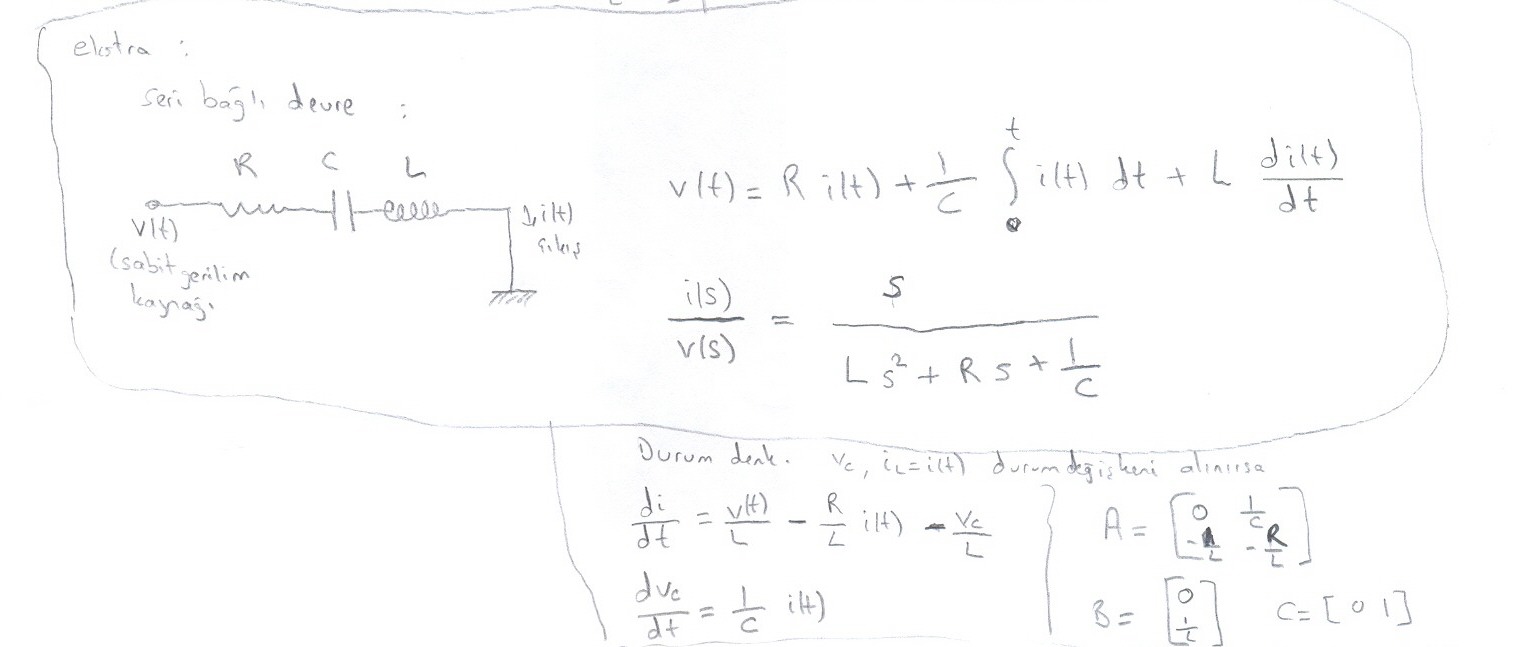 ekstra :
seri bağlı devre :
R C L
v(t)
(sabit gerilim
kaynağı
i(t)
çıkış
v(t) = R i(t) + 1/C ∫₀ᵗ i(t) dt + L di(t)/dt
i(s)/v(s) = s / (L s² + R s + 1/C)
Durum denk. vc, iL = i(t) durum değişkeni alınırsa
di/dt = v(t)/L - R/L i(t) - vc/L
dvc/dt = 1/C i(t)
A = [0 1/C; -1/L -R/L]
B = [0; 1/L] C = [0 1]